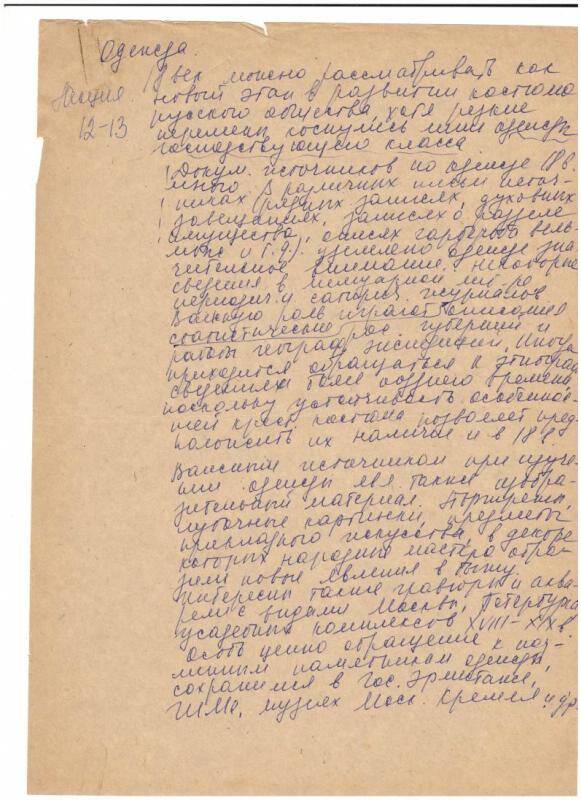 Одежда.
Лекция
12-13
18 век можно рассматривать как
новый этап в развитии костюма
русского общества, хотя резкие
перемены коснулись лишь одежды
господствующего класса
Докум. источников по одежде 18 в.
много. В различных письм источ-
никах рядных записях, духовных
завещаниях, записях о разделе
имущества, описях гардероба вель-
мож и т.д). уделено одежде зна
чительное внимание. Некоторые
сведения в мемуарной лит-ре,
периодич. и сатирич. журналов
Важную роль играют описания
статистические рос. губерний и
работы географ экспедиций. Иногда
приходится обращаться к этнограф
сведениям более позднего времени
поскольку устойчивость особенно-
стей крест. костюма позволяет пред
положить их наличие и в 18 в
Важным источником при изуче-
нии одежды явл. также изобра-
зительный материал. Портреты,
лубочные картинки, предметы
прикладного искусства, в декоре
которых народные мастера отра-
зили новые явления в быту.
Интересны также гравюры и аква
рели с видами Москвы, Петербурга
усадебных комплексов XVIII-XIX в.
Особо ценно обращение к под-
линным памятникам одежды,
сохранимся в гос. Эрмитаже,
ГИМе, музеях Моск. Кремля и др.